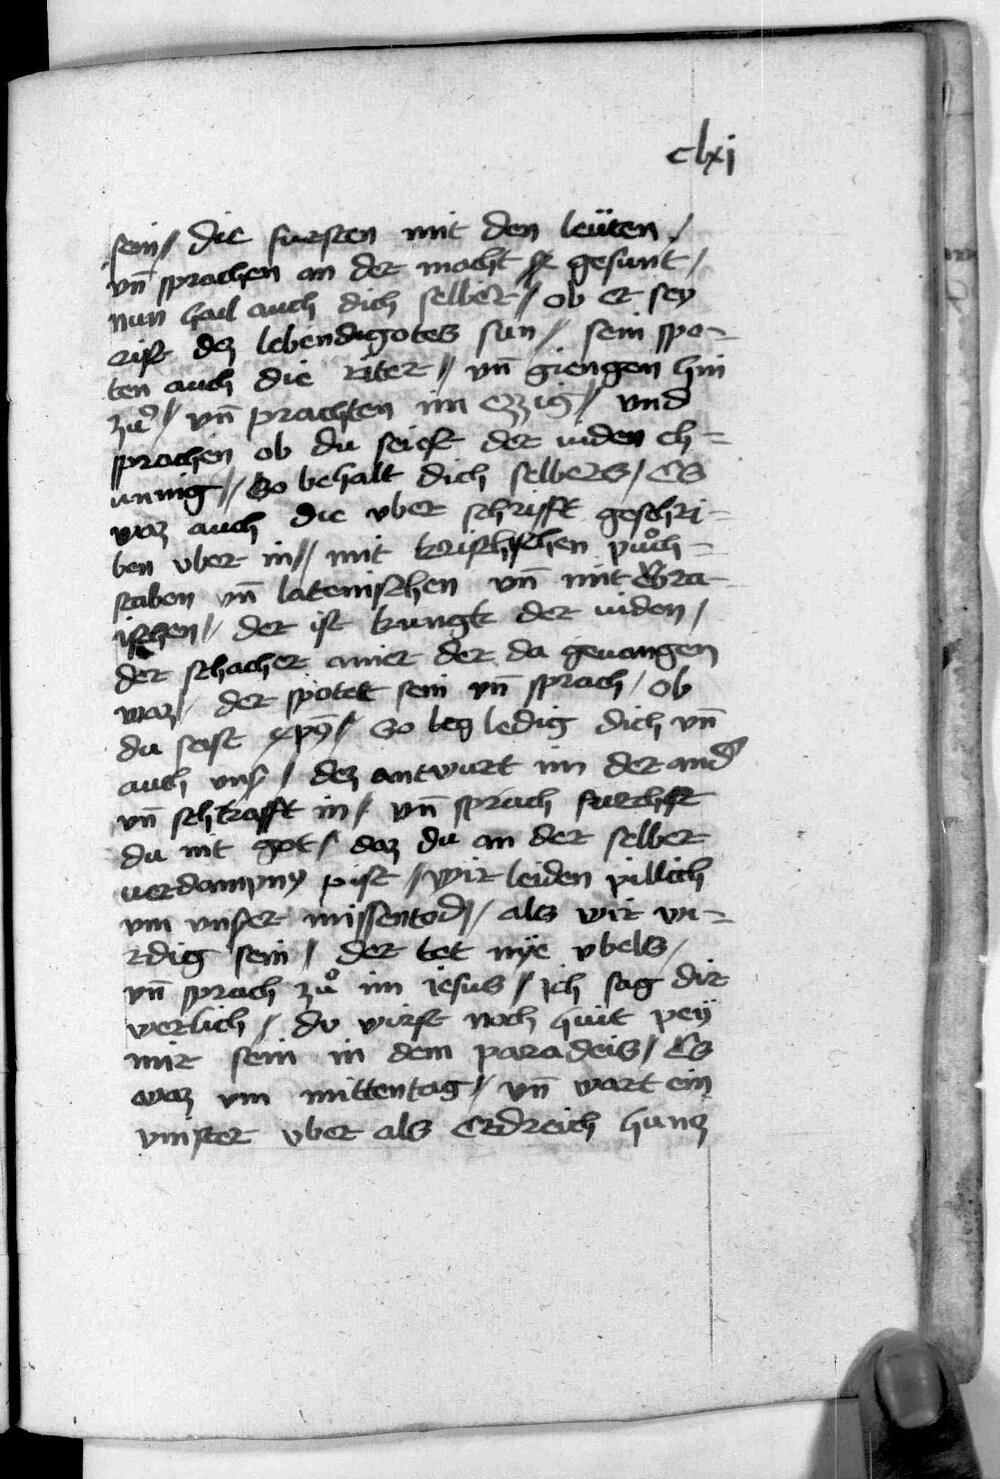 clxj
sein // die fursten mit den leüten /
vn̄ sprachen an der macht er gesunt /
nun hail auch dich selber // ob er sey
crist dez lebendigotes sun // sein spo-
ten auch die riter // vn̄ giengen hin
zuͦ // vn̄ prachten im ezzig // vnd
sprachen ob du seiest der iuden ch-
unnig // So behalt dich selbers / Es
waz auch die vber schrifft geschri-
ben vber in // mit krischischen puͦch-
staben vn̄ lateinischen vn̄ mit Ebra-
ischen // der ist kungk der iuden /
der schacher ainer der da geuangen
waz // der spotet sein vn̄ sprach / ob
du seist xp̄s // So leg ledig dich vn̄
auch vns // dez antwurt im der and
vn̄ schtrafft in // vn̄ sprach furchst
du nit got // daz du an der selber
verdampny pist // wir leiden pillich
vm vnser missentod // als wir wi-
rdig sein // der tet nÿe vbels /
vn̄ sprach zuͦ im iesus // Ich sag dir
werlich // du wirst noch hüit peÿ
mir sein in dem paradeis // Es
waz vm mittentag // vn̄ wart ein
vinster vber als Erdreich huntz